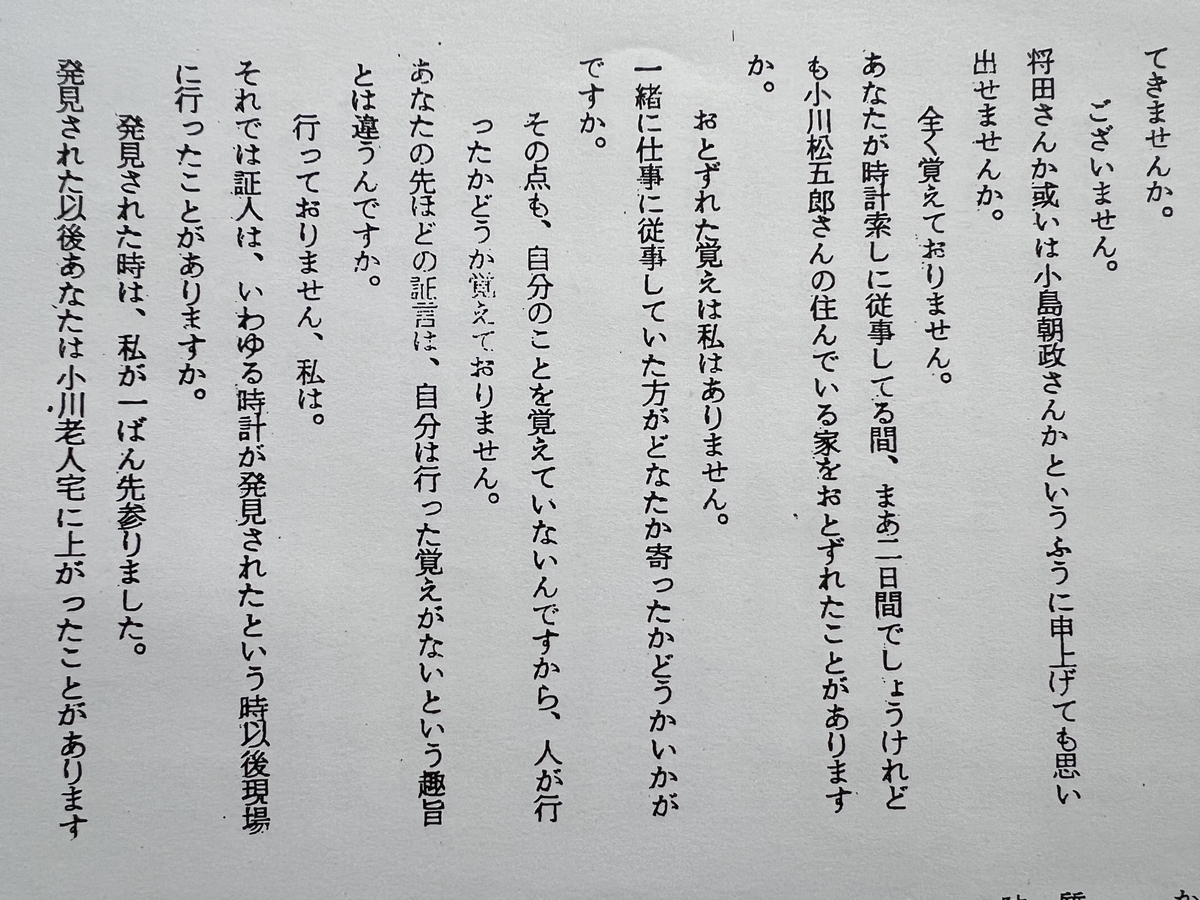 てきませんか。
ございません。
将田さんか或いは小島朝政さんかというふうに申上げても思い
出せませんか。
全く覚えておりません。
あなたが時計索しに従事してる間、まあ二日間でしょうけれど
も小川松五郎さんの住んでいる家をおとずれたことがあります
か。
おとずれた覚えは私はありません。
一緒に仕事に従事していた方がどなたか寄ったかどうかいかが
ですか。
その点も、自分のことを覚えていないんですから、人が行
ったかどうか覚えておりません。
あなたの先ほどの証言は、自分は行った覚えがないという趣旨
とは違うんですか。
行っておりません、私は。
それでは証人は、いわゆる時計が発見されたという時以後現場
に行ったことがありますか。
発見された時は、私が一ばん先参りました。
発見された以後あなたは小川老人宅に上がったことがあります